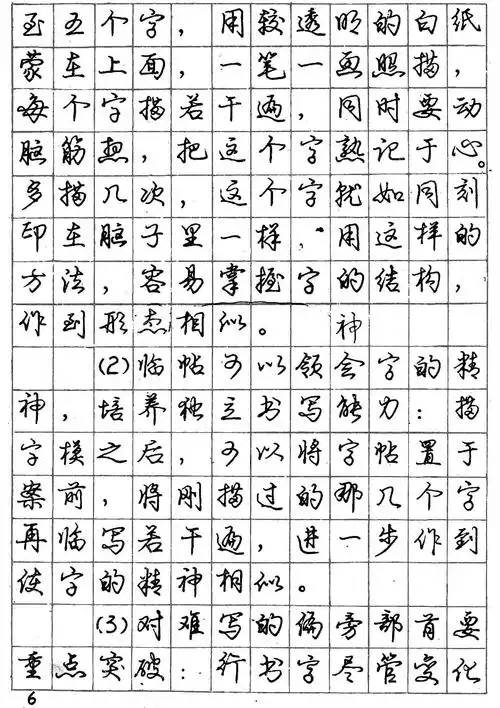 至五个字，用较透明的白纸
蒙在上面，一笔一画照描，
每个字描若干遍，同时要动
脑筋想，把这个字熟记于心。
多描几次，这个字就如同刻
印在脑子里一样，用这样的
方法，容易掌握字的结构，
作到形态相似。 神
(2)临帖可以领会字的精
神，培养独立书写能力：描
字模之后，可以将字帖置于
案前，将刚描过的那几个字
再临写若干遍，进一步作到
使字的精神相似。
(3)对难写的偏旁部首要
重点突破：行书字尽管变化
6